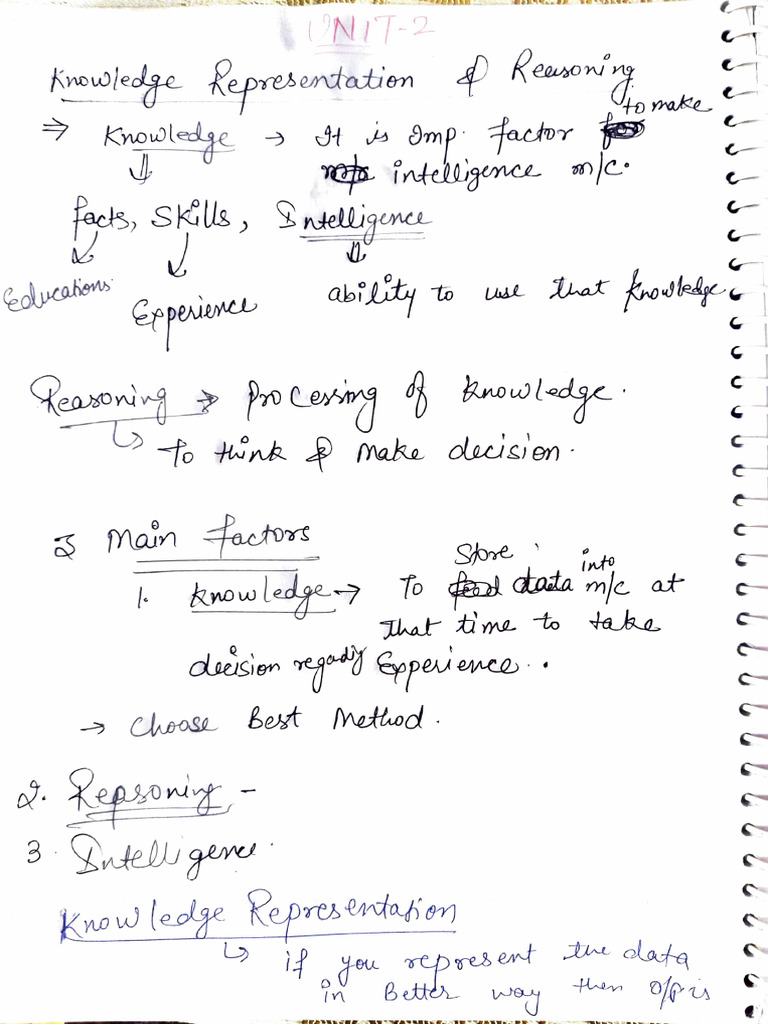 UNIT-2
Knowledge Representation & Reasoning
⇒ Knowledge → It is Imp. factor to make
intelligence m/c.
facts, Skills, Intelligence
Educations
Experience
ability to use that knowledge
Reasoning → Processing of knowledge.
To think & make decision.
3 Main factors
1. Knowledge → To Store data into m/c at
that time to take
decision regarding Experience.
→ Choose Best Method.
2. Reasoning -
3. Intelligence.
Knowledge Representation
if you represent the data
in Better way then o/p is